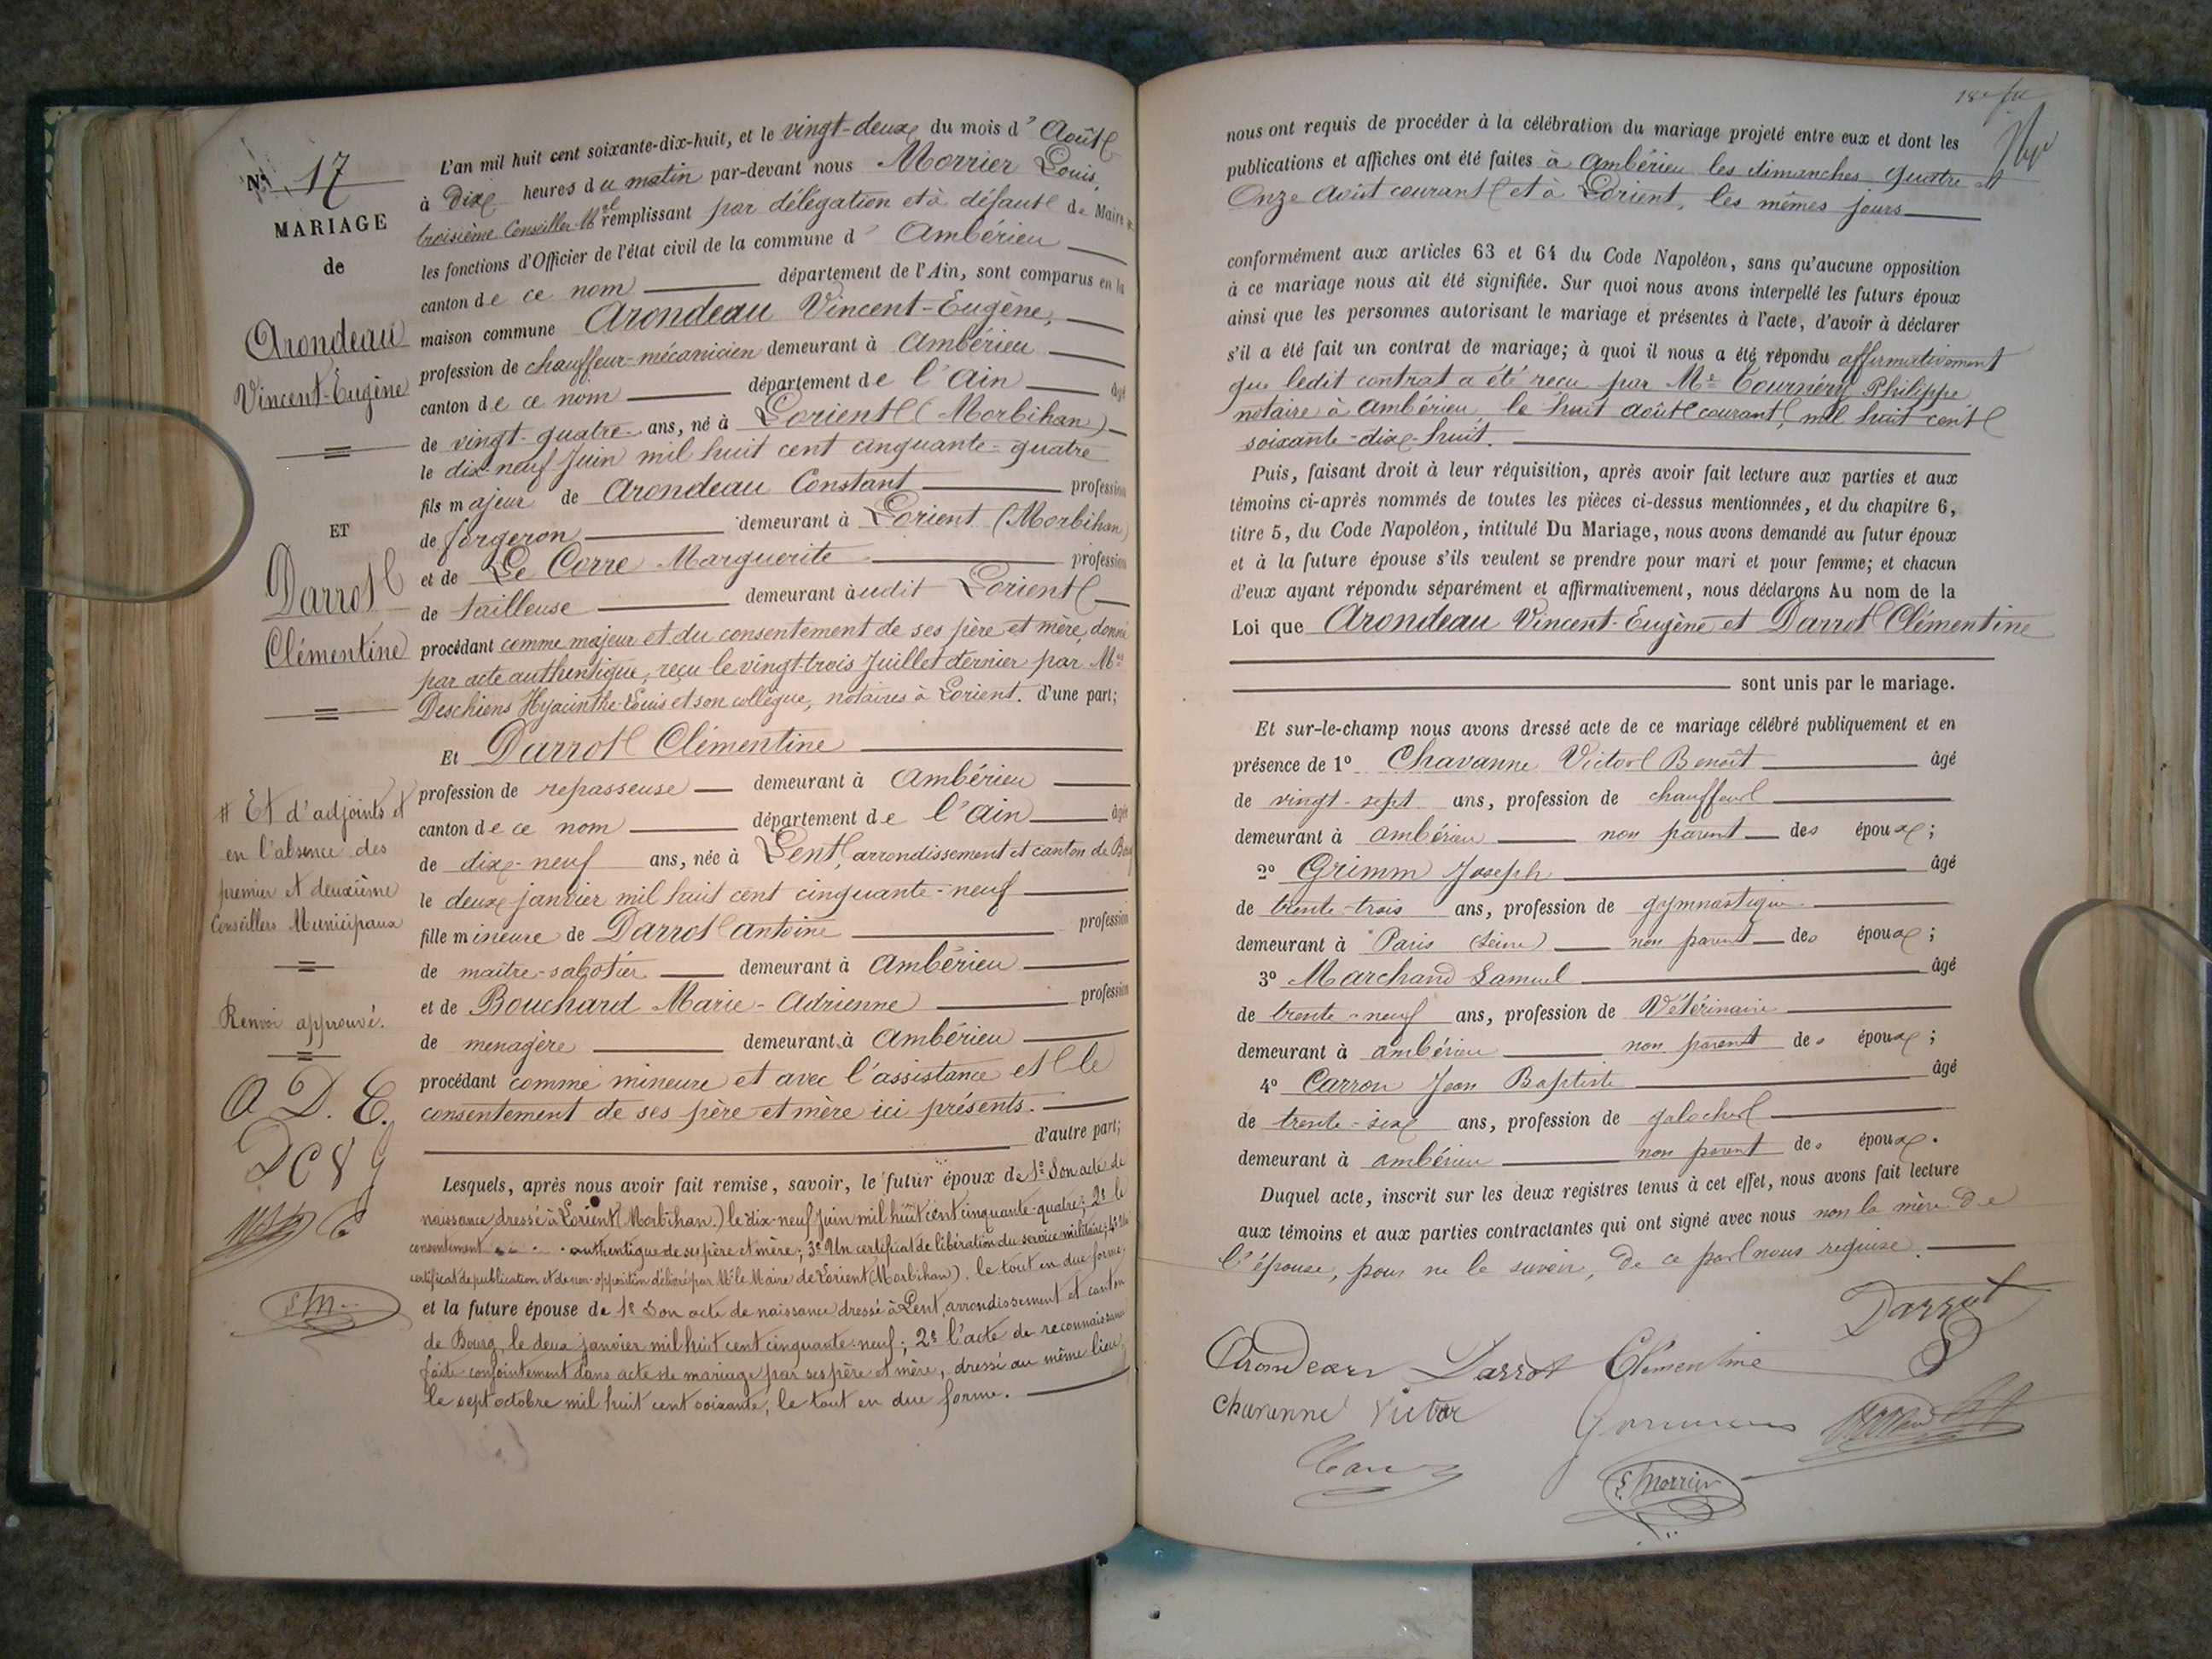 Nº 17
MARIAGE
de
Arondeau
Vincent-Eugène
ET
Darrot
Clémentine
# Et d'adjoints et
en l'absence des
premier et deuxième
Conseillers Municipaux
Renvoi approuvé.
A D. C.
L'an mil huit cent soixante-dix-huit, et le vingt-deux du mois d' Août
à Dix heures du matin par-devant nous Morrier Louis,
troisième Conseiller Mal remplissant par délégation et à défaut de Maire #
les fonctions d'Officier de l'état civil de la commune d' Ambérieu
canton de ce nom département de l'Ain, sont comparus en la
maison commune Arondeau Vincent-Eugène,
profession de chauffeur-mécanicien demeurant à Ambérieu
canton de ce nom département de l'Ain âgé
de vingt-quatre ans, né à Lorient (Morbihan)
le dix-neuf Juin mil huit cent cinquante-quatre
fils majeur de Arondeau Constant profession
de forgeron demeurant à Lorient (Morbihan)
et de Le Corre Marguerite profession
de tailleuse demeurant audit Lorient
procédant comme majeur et du consentement de ses père et mère, donné
par acte authentique, reçu le vingt-trois Juillet dernier par Mes
Deschiens Hyacinthe-Louis et son collègue, notaires à Lorient. d'une part;
Et Darrot Clémentine
profession de repasseuse demeurant à Ambérieu
canton de ce nom département de l'Ain âgée
de dix-neuf ans, née à Lent, arrondissement et canton de Bourg
le deux janvier mil huit cent cinquante-neuf
fille mineure de Darrot Antoine profession
de maître-sabotier demeurant à Ambérieu
et de Bouchard Marie-Adrienne profession
de menagère demeurant à Ambérieu
procédant comme mineure et avec l'assistance et le
consentement de ses père et mère ici présents.
d'autre part;
Lesquels, après nous avoir fait remise, savoir, le futur époux de 1º Son acte de
naissance dressé à Lorient (Morbihan) le dix-neuf Juin mil huit cent cinquante-quatre; 2º le
consentement authentique de ses père et mère; 3º Un certificat de libération du service militaire; 4º Un
certificat de publication et de non-opposition délivré par Mr le Maire de Lorient (Morbihan), le tout en due forme;
et la future épouse de 1º Son acte de naissance dressé à Lent, arrondissement et canton
de Bourg, le deux janvier mil huit cent cinquante-neuf; 2º l'acte de reconnaissance
faite conjointement dans acte de mariage par ses père et mère, dressé au même lieu,
le sept octobre mil huit cent soixante, le tout en due forme.
nous ont requis de procéder à la célébration du mariage projeté entre eux et dont les
publications et affiches ont été faites à Ambérieu les dimanches quatre et
Onze Août courant et à Lorient, les mêmes jours
conformément aux articles 63 et 64 du Code Napoléon, sans qu'aucune opposition
à ce mariage nous ait été signifiée. Sur quoi nous avons interpellé les futurs époux
ainsi que les personnes autorisant le mariage et présentes à l'acte, d'avoir à déclarer
s'il a été fait un contrat de mariage; à quoi il nous a été répondu affirmativement
que ledit contrat a été reçu par Me Tournéry Philippe
notaire à Ambérieu, le huit août courant, mil huit cent
soixante-dix-huit.
Puis, faisant droit à leur réquisition, après avoir fait lecture aux parties et aux
témoins ci-après nommés de toutes les pièces ci-dessus mentionnées, et du chapitre 6,
titre 5, du Code Napoléon, intitulé Du Mariage, nous avons demandé au futur époux
et à la future épouse s'ils veulent se prendre pour mari et pour femme; et chacun
d'eux ayant répondu séparément et affirmativement, nous déclarons Au nom de la
Loi que Arondeau Vincent-Eugène et Darrot Clémentine
sont unis par le mariage.
Et sur-le-champ nous avons dressé acte de ce mariage célébré publiquement et en
présence de 1º Chavanne Victor Benoît âgé
de vingt-sept ans, profession de chauffeur
demeurant à Ambérieu non parent des époux;
2º Grimm Joseph âgé
de trente-trois ans, profession de gymnastique
demeurant à Paris (Seine) non parent des époux;
3º Marchand Samuel âgé
de trente-neuf ans, profession de Vétérinaire
demeurant à Ambérieu non parent des époux;
4º Carron Jean Baptiste âgé
de trente-six ans, profession de galocher
demeurant à Ambérieu non parent des époux.
Duquel acte, inscrit sur les deux registres tenus à cet effet, nous avons fait lecture
aux témoins et aux parties contractantes qui ont signé avec nous non la mère de
l'épouse, pour ne le savoir, de ce par nous requise.
Darrot
Arondeau Darrot Clémentine
Chavanne Victor
L. Morrier